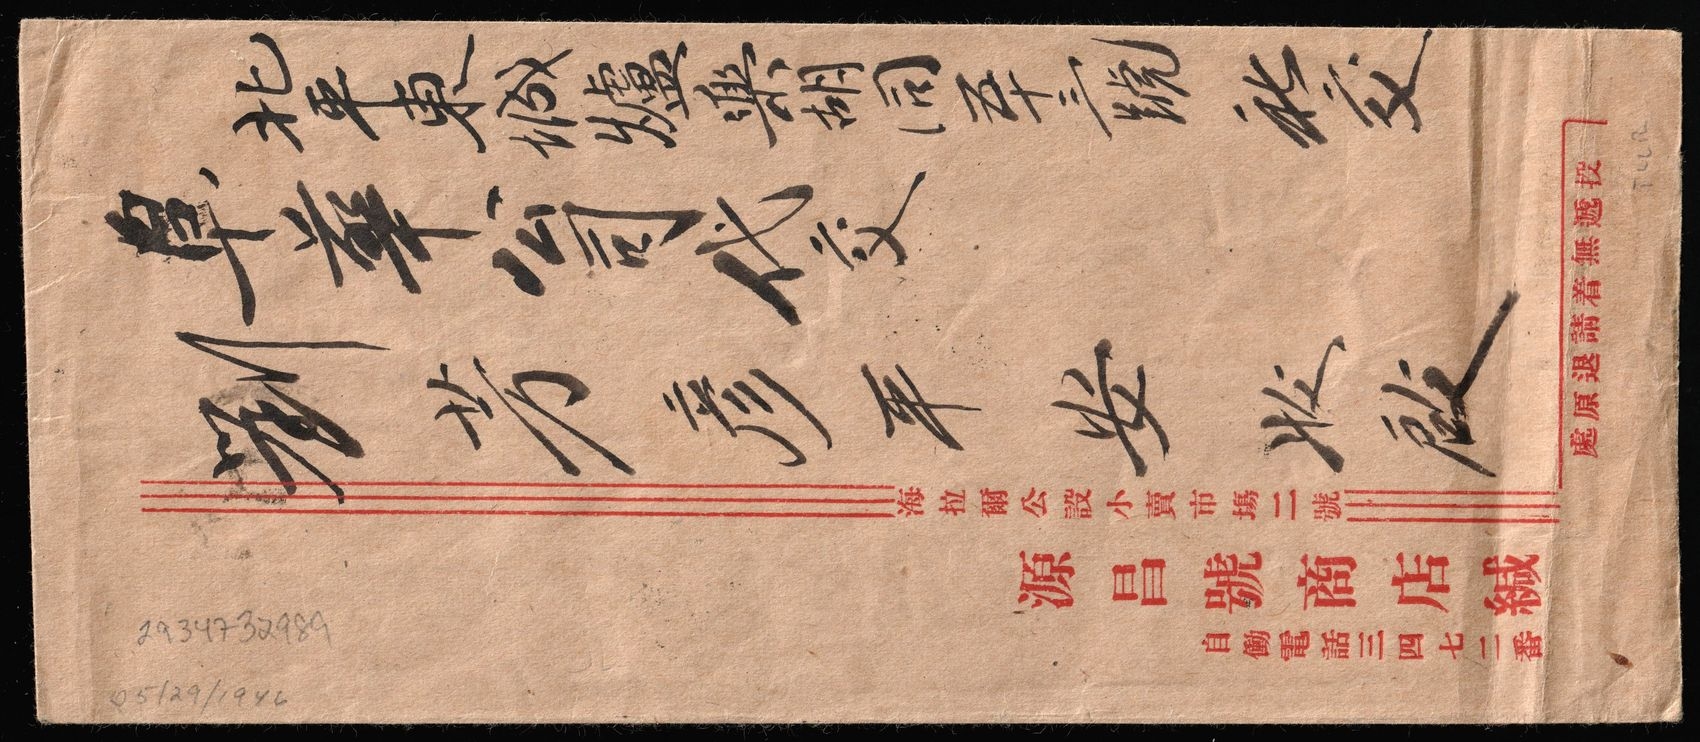 投遞無着請退原處
北平東城爐藥胡同五十三號 永交
阜華公司代交
劉芳彥平安收啟
海拉爾公設小賣市場二號
源昌號商店緘
自働電話三四七二番
2934732989
05/29/1946